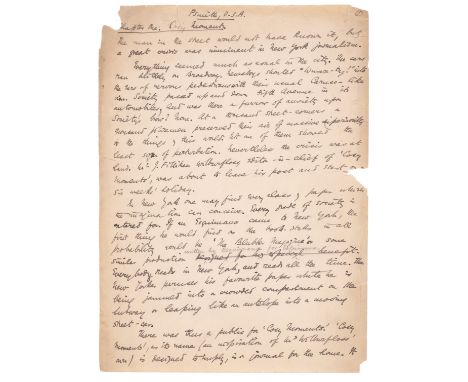 Psmith, U.S.A.
Chapter One. Cosy Moments
The man in the street would not have known it, but
a great crisis was imminent in New York journalism.
Everything seemed much as usual in the city. The cars
ran blithely on Broadway. Newsboys shouted "Wux-try!" into
the ears of nervous pedestrians with their usual Caruso-like
vim. Society passed up and down Fifth Avenue in its
automobiles, and was there a furrow of anxiety upon
Society's brow? None. At a thousand street-corners a
thousand policemen preserved their air of massive superiority
to the things of this world. Not one of them showed the
least sign of perturbation. Nevertheless the crisis was at
hand. Mr. J. Fillken Wilberfloss, editor-in-chief of 'Cosy
Moments', was about to leave his post and start on a
six weeks' holiday.
In New York one may find every class of paper which
the imagination can conceive. Every grade of society is
catered for. If an Esquimaux came to New York, the
first thing he would find on the book stalls in all
probability would be 'The Blubber Magazine' or some
similar production
Everybody reads in New York, and reads all the time. The
New Yorker peruses his favourite paper while he is
being jammed into a crowded compartment on the
subway or leaping like an antelope into a moving
street-car.
There was thus a public for 'Cosy Moments'. 'Cosy
Moments', as its name (an inspiration of Mr Wilberfloss'
own) is designed to imply, is a journal for the home. It